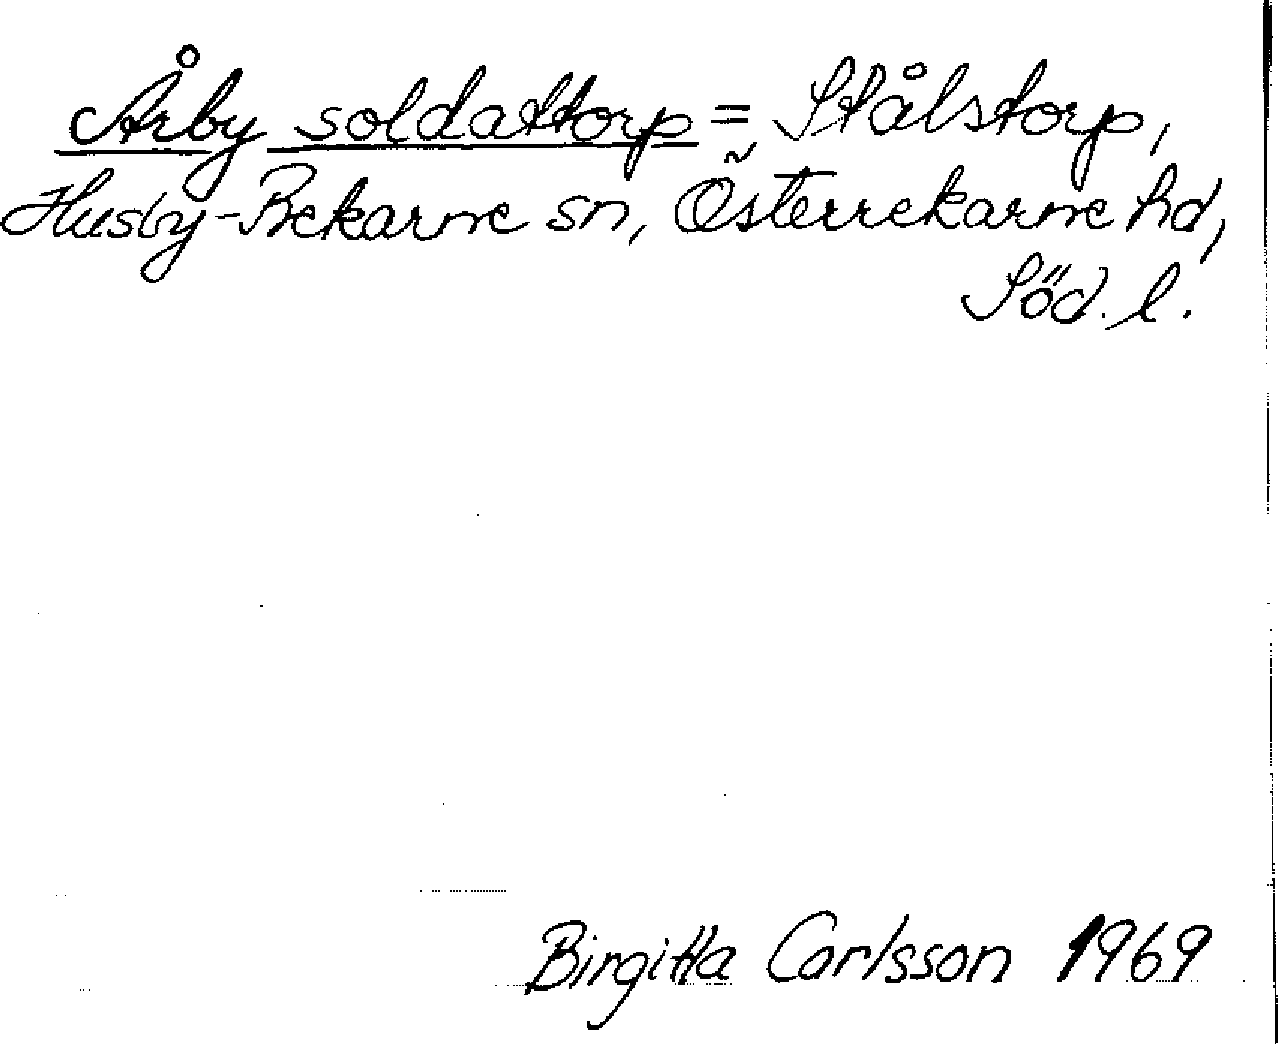 Årby soldattorp = Stålstorp,
Husby-Rekarne sn, Österrekarne hd,
Söd. l.
Birgitta Carlsson 1969